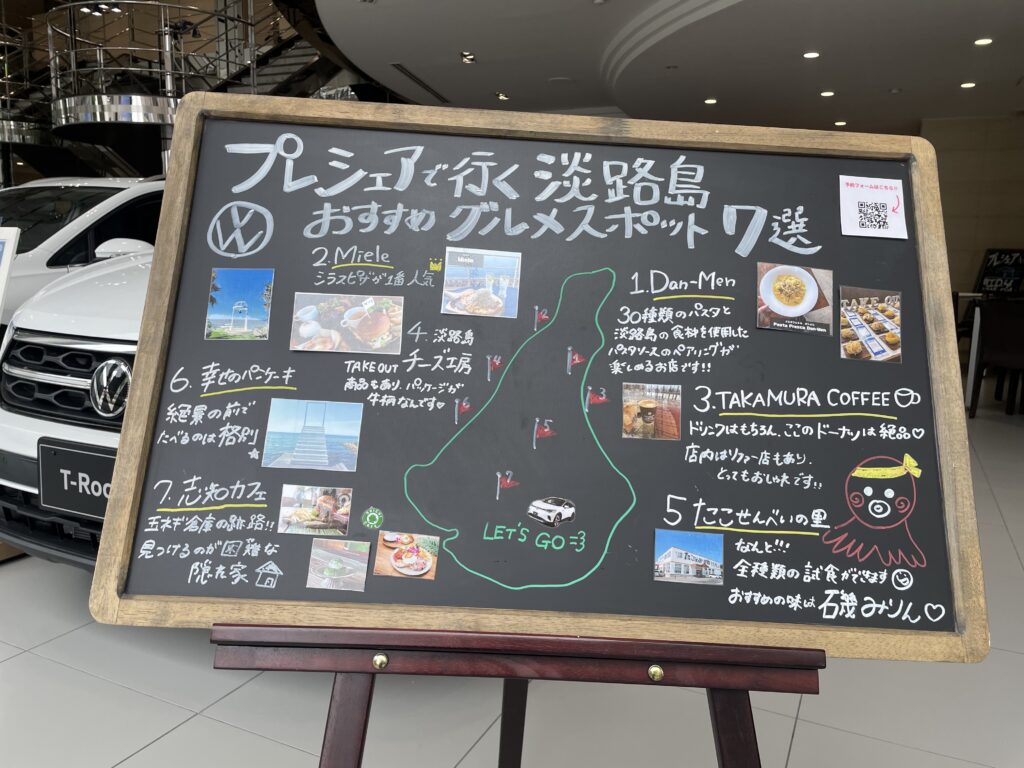 プレシェアで行く淡路島
おすすめグルメスポット7選
予約フォームはこちら!!
1.Dan-Men
30種類のパスタと
淡路島の食材を使用した
パスタソースのペアリングが
楽しめるお店です!!
Pasta Fresca Dan-Men
TAKE OUT
2.Miele
シラスピザが1番人気
Miele
3.TAKAMURA COFFEE
ドリンクはもちろん、ここのドーナツは絶品♡
店内はソファー店もあり、
とてもおしゃれです!!
4.淡路島
チーズ工房
TAKEOUT
商品もあり、パッケージが
牛柄なんです♡
5 たこせんべいの里
なんと!!!
全種類の試食ができます
おすすめの味は 磯みりん♡
6.幸せのパンケーキ
絶景の前で
たべるのは格別
7.志知カフェ
玉ネギ倉庫の跡路!!
見つけるのが困難な
隠れ家
2
1
4
3
6
5
7
LET'S GO
T-Roc